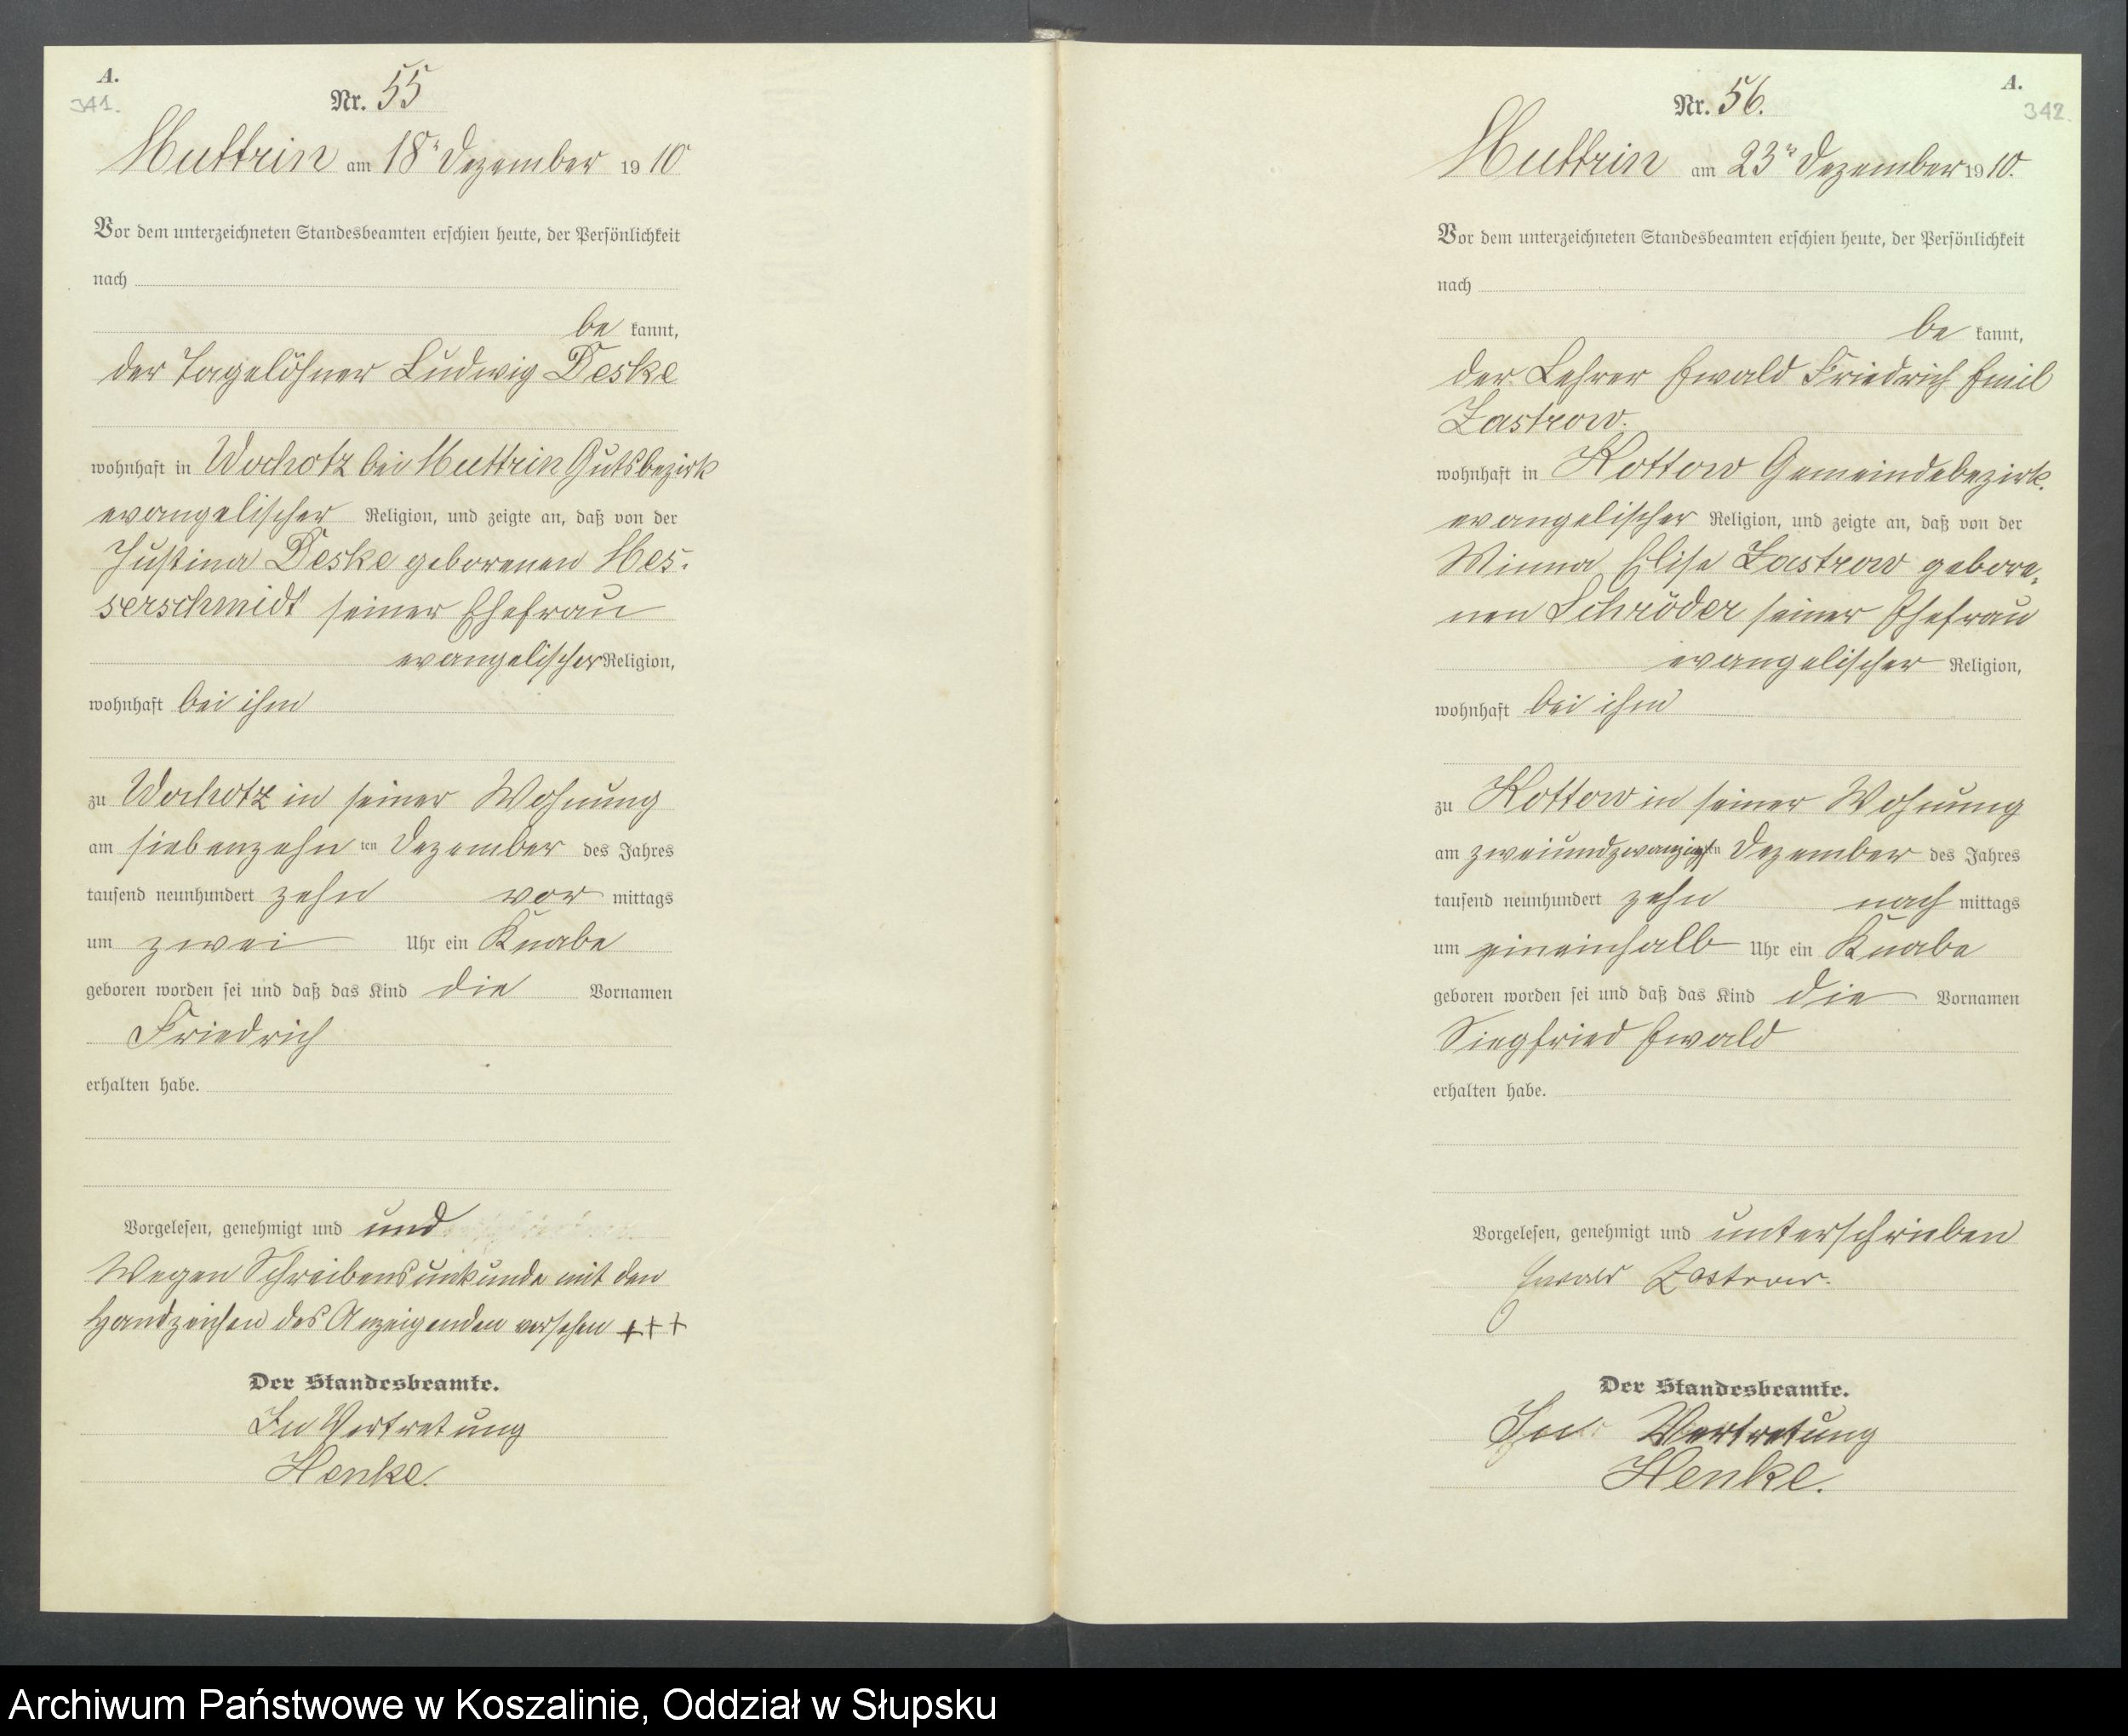 A.
341.
Nr. 55
Muttrin am 18ten Dezember 1910
Vor dem unterzeichneten Standesbeamten erschien heute, der Persönlichkeit
nach
be kannt,
der Tagelöhner Ludwig Deske
wohnhaft in Wochotz bei Muttrin Gutsbezirk
evangelischer Religion, und zeigte an, daß von der
Justina Deske geborenen Mes-
serschmidt seiner Ehefrau
evangelischer Religion,
wohnhaft bei ihm
zu Wochotz in seiner Wohnung
am siebenzehn ten Dezember des Jahres
tausend neunhundert zehn vor mittags
um zwei Uhr ein Knabe
geboren worden sei und daß das Kind die Vornamen
Friedrich
erhalten habe.
Vorgelesen, genehmigt und und
Wegen Schreibensunkunde mit den
Handzeichen des Anzeigenden versehen +++
Der Standesbeamte.
In Vertretung
Henke.
A.
342
Nr. 56.
Muttrin am 23ten Dezember 1910.
Vor dem unterzeichneten Standesbeamten erschien heute, der Persönlichkeit
nach
be kannt,
der Lehrer Ewald Friedrich Emil
Zastrow.
wohnhaft in Kottow Gemeindebezirk.
evangelischer Religion, und zeigte an, daß von der
Minna Elise Zastrow gebore-
nen Schröder seiner Ehefrau
evangelischer Religion,
wohnhaft bei ihm
zu Kottow in seiner Wohnung
am zweiundzwanzigsten Dezember des Jahres
tausend neunhundert zehn nach mittags
um eineinhalb Uhr ein Knabe
geboren worden sei und daß das Kind die Vornamen
Siegfried Ewald
erhalten habe.
Vorgelesen, genehmigt und unterschrieben
Ewald Zastrow.
Der Standesbeamte.
In Vertretung
Henke.
Archiwum Państwowe w Koszalinie, Oddział w Słupsku